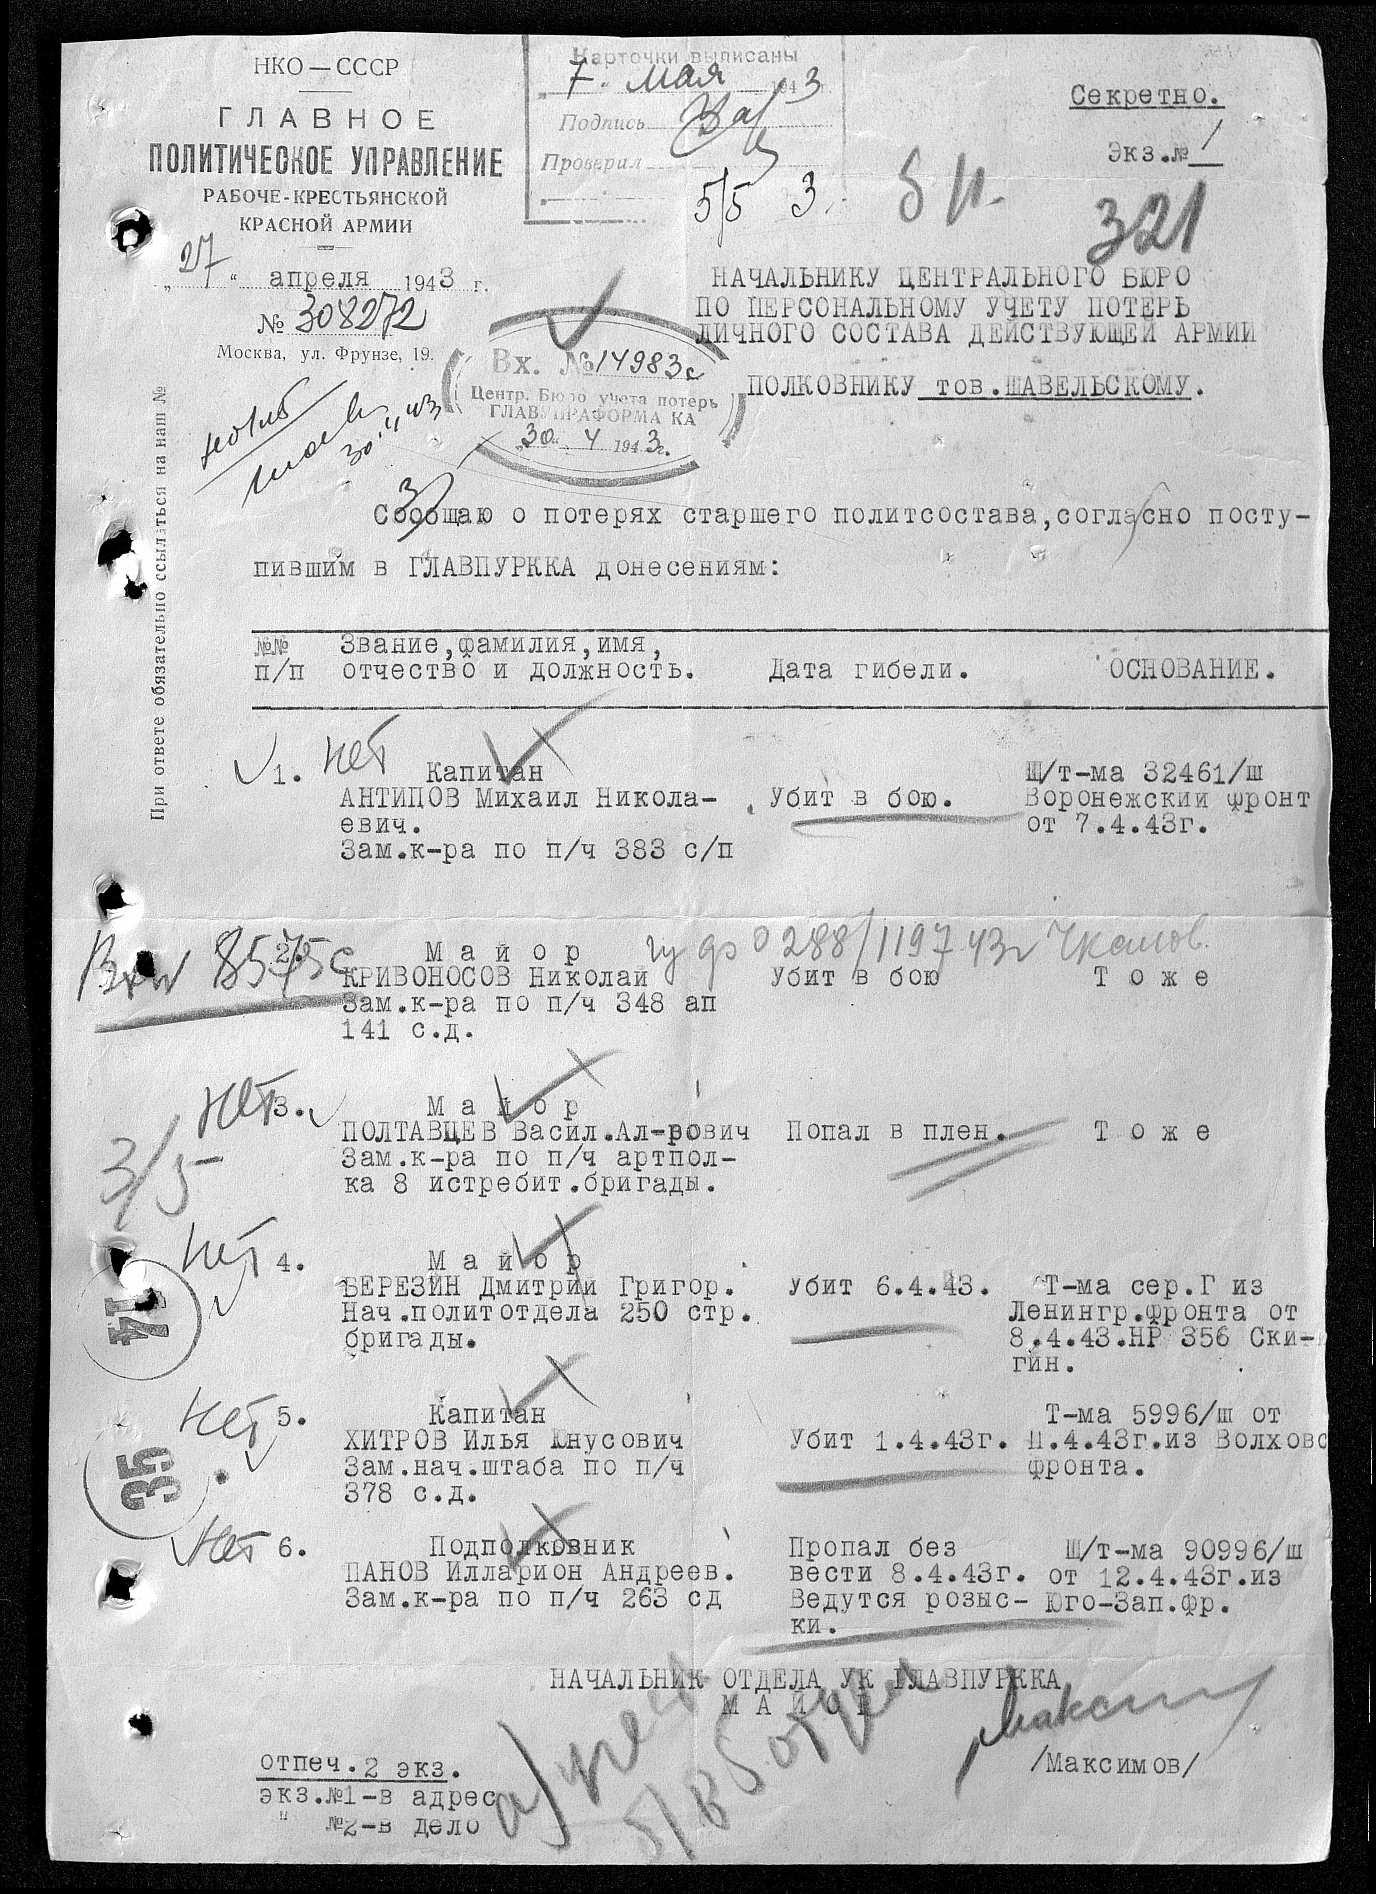 НКО — СССР
ГЛАВНОЕ
ПОЛИТИЧЕСКОЕ УПРАВЛЕНИЕ
РАБОЧЕ-КРЕСТЬЯНСКОЙ
КРАСНОЙ АРМИИ
„27“ апреля 1943 г.
№ 308272
Москва, ул. Фрунзе, 19.
При ответе обязательно ссылаться на наш №
Карточки выписаны
„7“ мая 1943 г.
Подпись
Проверил
5/5 3
Секретно.
Экз.№ 1
321
НАЧАЛЬНИКУ ЦЕНТРАЛЬНОГО БЮРО
ПО ПЕРСОНАЛЬНОМУ УЧЕТУ ПОТЕРЬ
ЛИЧНОГО СОСТАВА ДЕЙСТВУЮЩЕЙ АРМИИ
ПОЛКОВНИКУ тов.ШАВЕЛЬСКОМУ.
Вх. № 14983с
Центр. Бюро учета потерь
ГЛАВУПРАФОРМА КА
„30“ 4 1943г.
Сообщаю о потерях старшего политсостава,согласно посту-
пившим в ГЛАВПУРККА донесениям:
№№ Звание,фамилия,имя,
п/п отчество и должность. Дата гибели. ОСНОВАНИЕ.
1. нет Капитан Ш/т-ма 32461/ш
АНТИПОВ Михаил Никола- Убит в бою. Воронежский фронт
евич. от 7.4.43г.
Зам.к-ра по п/ч 383 с/п
Вх№ 8575с
2. Майор 0288/1197 43г Чкалов.
КРИВОНОСОВ Николай Убит в бою Тоже
Зам.к-ра по п/ч 348 ап
141 с.д.
нет 3. Майор
ПОЛТАВЦЕВ Васил.Ал-рович Попал в плен. Тоже
Зам.к-ра по п/ч артпол-
ка 8 истребит.бригады.
3/5
нет 4. Майор
БЕРЕЗИН Дмитрий Григор. Убит 6.4.43. Т-ма сер.Г из
Нач.политотдела 250 стр. Ленингр.фронта от
бригады. 8.4.43.НР 356 Ски-
гин.
14
нет 5. Капитан Т-ма 5996/ш от
ХИТРОВ Илья Юнусович Убит 1.4.43г. 11.4.43г.из Волховс
Зам.нач.штаба по п/ч фронта.
378 с.д.
35
нет 6. Подполковник Пропал без Ш/т-ма 90996/ш
ПАНОВ Илларион Андреев. вести 8.4.43г. от 12.4.43г.из
Зам.к-ра по п/ч 263 сд Ведутся розыс- Юго-Зап.фр.
ки.
НАЧАЛЬНИК ОТДЕЛА УК ГЛАВПУРККА
МАЙОР
/Максимов/
отпеч.2 экз.
экз.№1-в адрес
" №2-в дело